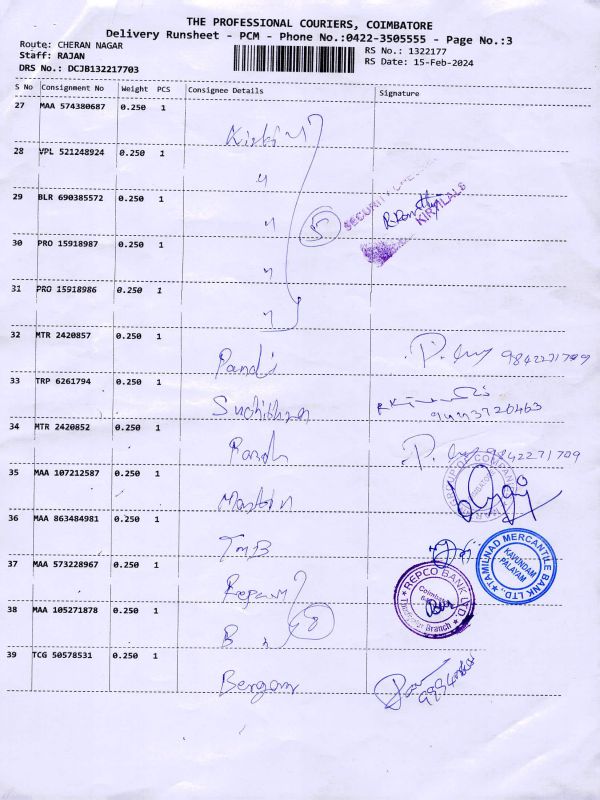 THE PROFESSIONAL COURIERS, COIMBATORE
Delivery Runsheet - PCM - Phone No.:0422-3505555 - Page No.:3
Route: CHERAN NAGAR
Staff: RAJAN
DRS No.: DCJB132217703
RS No.: 1322177
RS Date: 15-Feb-2024
S No Consignment No Weight PCS Consignee Details Signature
27 MAA 574380687 0.250 1
28 VPL 521248924 0.250 1
29 BLR 690385572 0.250 1
SECURITY
KIRTILALS
30 PRO 15918987 0.250 1
31 PRO 15918986 0.250 1
32 MTR 2420857 0.250 1
Pandi 9842271709
33 TRP 6261794 0.250 1
34 MTR 2420852 0.250 1
9842271709
35 MAA 107212587 0.250 1
36 MAA 863484981 0.250 1
TMB
TAMILNAD MERCANTILE BANK LTD.,
KAVUNDAM
PALAYAM
37 MAA 573228967 0.250 1
REPCO BANK LTD.
Branch
38 MAA 105271878 0.250 1
39 TCG 50578531 0.250 1